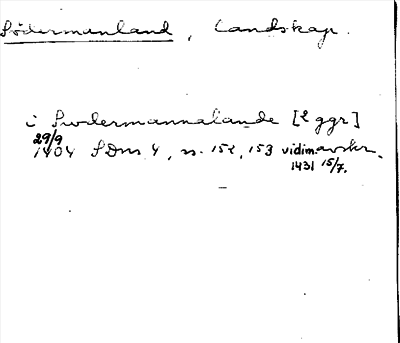 Södermanland, Landskap.
i Swdermannalande [2 ggr]
29/9
1404 SDns 1, s. 152, 153 vidim.avskr.
1431 15/7.